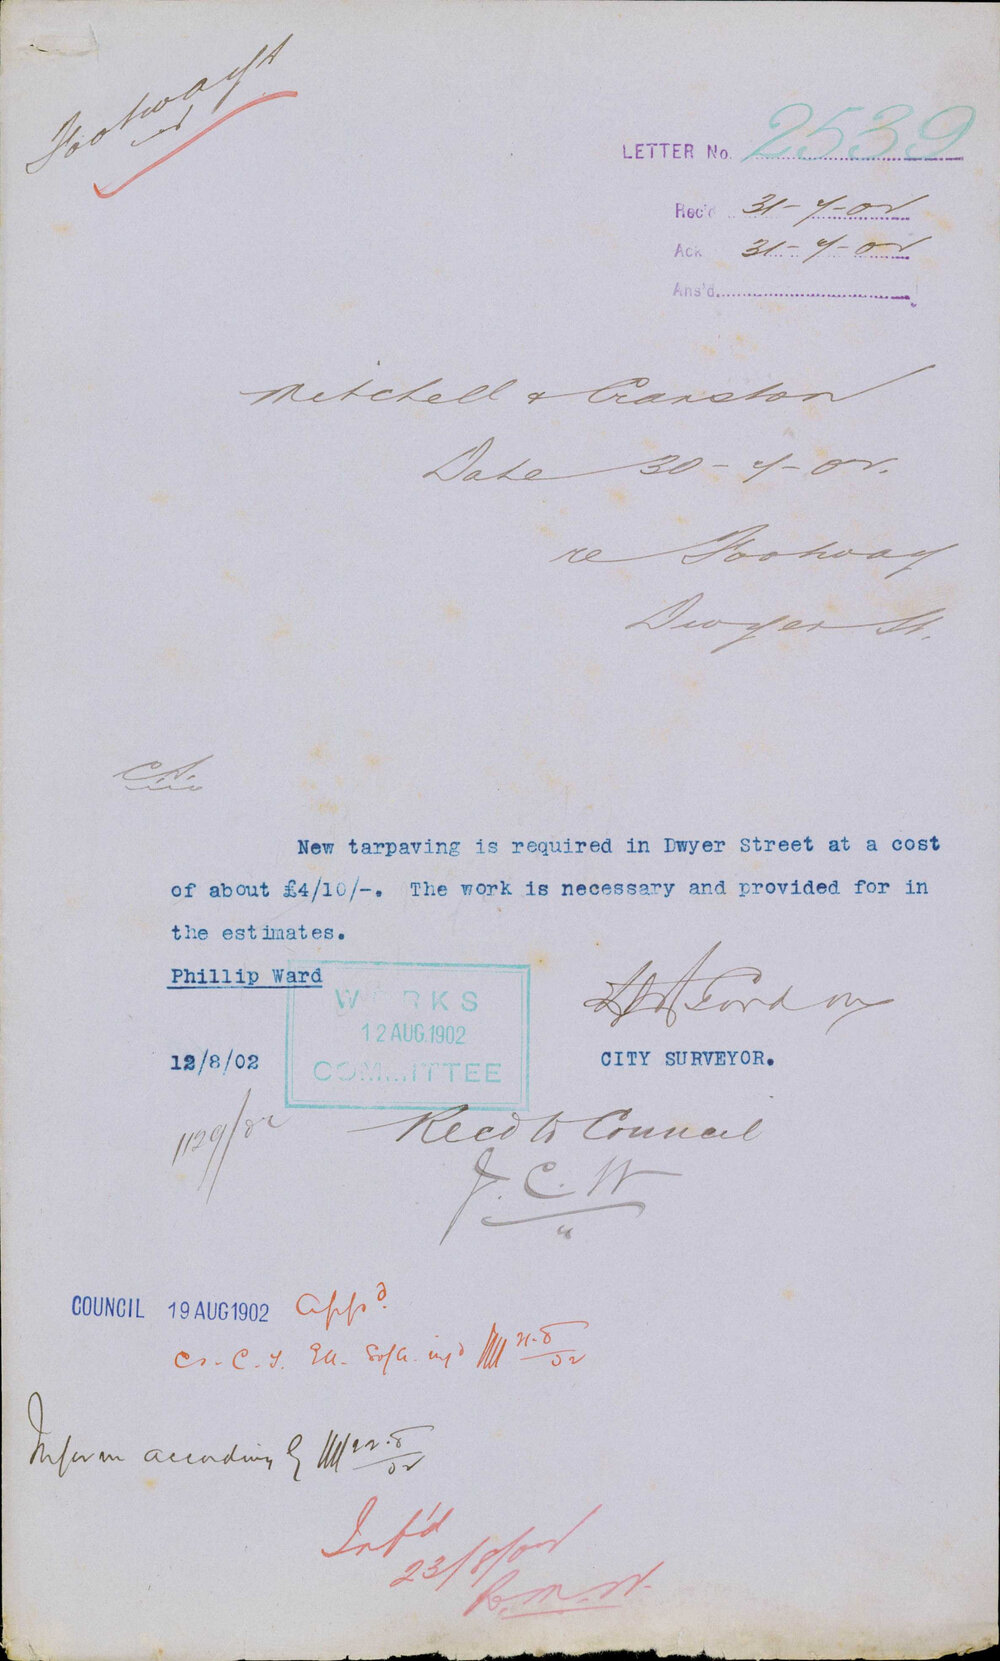 Footways
LETTER No. 2539
Rec'd 31-7-02
Ack 31-7-02
Ans'd
Mitchell & Cranston
Date 30-7-02.
re Footway
Dwyer St.
New tarpaving is required in Dwyer Street at a cost
of about £4/10/-. The work is necessary and provided for in
the estimates.
Phillip Ward
WORKS
12 AUG. 1902
COMMITTEE
Gordon
12/8/02
CITY SURVEYOR.
1129/02
Recd to Council
J. C. W
COUNCIL 19 AUG 1902 appd.
22-8/02
Inform accordingly 22-8/02
Inf'd
23/8/02